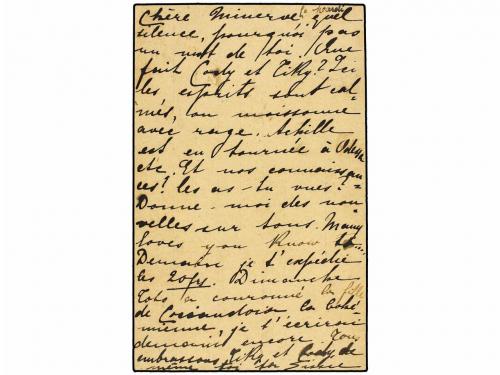 Chère Minerve quel
silence, pourquoi pas
un mot de toi. Que
fait Cody et Tiky? Ici
les esprits sont cal-
més, on moissonne
avec rage. Achille
est en tournée à Odessa
etc. Et nos connaissan
ces? les as-tu vues?
Donne-moi des nou
velles sur tous. Many
loves you know
Demain je t'expédie
les 20frs. Dimanche
Toto a couronné la
de la bohé-
mienne, je t'écrirai
demain encore. Tous
embrassons Tiky et Cody de
même toi